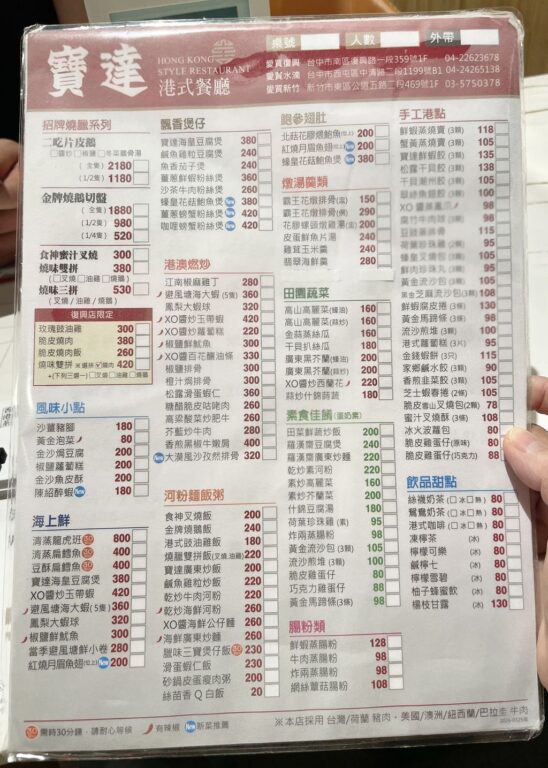 寶達
HONG KONG
STYLE RESTAURANT
港式餐廳
桌號 人數 外帶
愛買復興 台中市南區復興路一段359號1F 04-22623678
愛買水湳 台中市西屯區中清路二段1199號B1 04-24265138
愛買新竹 新竹市東區公道五路二段469號1F 03-5750378
招牌燒臘系列
二吃片皮鵝
(全隻) 2180
(1/2隻) 1180
金牌燒鵝切盤
(全隻) 1880
(1/2隻) 980
(1/4隻) 520
食神蜜汁叉燒 300
燒味雙拼 380
(叉燒/油雞/燒鵝)
燒味三拼 530
(叉燒/油雞/燒鵝)
復興店限定
玫瑰豉油雞 300
脆皮燒肉 380
脆皮燒肉飯 260
燒味雙拼 420
風味小點
沙薑豬腳 180
黃金泡菜 80
金沙焗豆腐 200
椒鹽蘿蔔糕 200
金沙魚皮酥 200
陳紹醉蝦 New 180
海上鮮
清蒸龍虎班 800
清蒸扁鱈魚 400
豆酥扁鱈魚 400
寶達海皇豆腐煲 380
XO醬炒玉帶蝦 420
避風塘海大蝦(5隻) 360
鳳梨大蝦球 320
椒鹽鮮魷魚 300
當季避風塘鮮小卷 280
紅燒月眉魚翅(位上) New 200
飄香煲仔
寶達海皇豆腐煲 380
鹹魚雞粒豆腐煲 240
魚香茄子煲 240
薑蔥鮮蝦粉絲煲 360
沙茶牛肉粉絲煲 260
蠔皇花菇鮑魚煲 New 380
薑蔥螃蟹粉絲煲 New 420
咖哩螃蟹粉絲煲 New 420
港澳燃炒
江南椒麻雞丁 280
避風塘海大蝦(5隻) 360
鳳梨大蝦球 320
XO醬炒玉帶蝦 420
XO醬炒蘿蔔糕 220
椒鹽鮮魷魚 300
XO醬百花釀油條 330
椒鹽排骨 300
橙汁焗排骨 300
松露滑蛋蝦仁 360
糖醋脆皮咕咾肉 260
高粱酸菜炒肥牛 260
芥藍炒牛肉 280
香煎黑椒牛嫩房 400
New 大漠風沙孜然排骨 320
河粉麵飯粥
食神叉燒飯 200
金牌燒鵝飯 240
港式豉油雞飯 180
燒臘雙拼飯(叉燒,油雞) 220
寶達廣東炒飯 200
鹹魚雞粒炒飯 220
乾炒牛肉河粉 220
乾炒海鮮河粉 260
XO醬海鮮公仔麵 260
海鮮廣東炒麵 260
臘味三寶煲仔飯 230
滑蛋蝦仁飯 230
砂鍋皮蛋瘦肉粥 200
絲苗香Q白飯 20
鮑參翅肚
北菇花膠煨鮑魚(位上) 200
紅燒月眉魚翅(位上) New 200
蠔皇花菇鮑魚煲 New 380
燉湯羹類
霸王花燉排骨(盅) 150
霸王花燉排骨(例) 290
花膠螺頭燉雞湯(盅) 200
皮蛋鮮魚片湯 240
雞茸玉米羹 240
翡翠海鮮羹 280
田園蔬菜
高山高麗菜(蠔油) 160
高山高麗菜(蒜炒) 160
金銀蒜絲瓜 160
干貝扒絲瓜 180
廣東黑芥蘭(蠔油) 200
廣東黑芥蘭(蒜炒) 200
XO醬炒西蘭花 220
蒜炒什錦蔬菜 180
素食佳餚(蛋奶素)
田菜鮮蔬炒飯 200
羅漢齋豆腐煲 240
羅漢齋廣東炒麵 220
乾炒素河粉 220
素炒高麗菜 160
素炒芥蘭菜 200
什錦豆腐湯 180
荷葉珍珠雞(素) 95
炸兩蒸腸粉 98
黃金流沙包(3顆) 105
流沙煎堆(3顆) 100
脆皮雞蛋仔 80
巧克力雞蛋仔 88
黃金馬蹄條(3條) 98
腸粉類
鮮蝦蒸腸粉 128
牛肉蒸腸粉 98
炸兩蒸腸粉 98
網絲蕈菇腸粉 108
手工港點
鮮蝦蒸燒賣(3顆) 118
蟹黃蒸燒賣(3顆) 105
寶達鮮蝦餃(3顆) 135
松露干貝餃(3顆) 138
干貝蒸粉餃(3顆) 105
100
XO醬蒸鳳爪 98
腐竹牛肉球(3顆) 98
115
荷葉珍珠雞(3顆) 95
105
鮮肉炸珠丸(3顆) 95
黃金流沙包(3顆) 105
黑金芝麻流沙包(3顆) 108
鮮蝦腐皮捲(3條) 130
黃金馬蹄條(3條) 98
流沙煎堆(3顆) 100
港式蘿蔔糕(3片) 95
金錢蝦餅(3片) 115
家鄉鹹水餃(3顆) 90
香煎韭菜餃(3顆) 105
芝士蝦春捲(3條) 105
脆皮雪山叉燒包(2顆) 78
蜜汁叉燒酥(3顆) 108
冰火波蘿包 80
脆皮雞蛋仔(原味) 80
脆皮雞蛋仔(巧克力) 88
飲品甜點
絲襪奶茶(□冰□熱) 80
鴛鴦奶茶(□冰□熱) 80
港式咖啡(□冰□熱) 80
凍檸茶 (冰) 80
檸檬可樂 (冰) 80
鹹檸七 (冰) 80
檸檬雪碧 (冰) 80
柚子蜂蜜飲 (冰) 80
楊枝甘露 (冰) 130
需時30分鐘,請耐心等候 有辣椒 New 新菜推薦
※本店採用 台灣/荷蘭 豬肉・美國/澳洲/紐西蘭/巴拉圭 牛肉